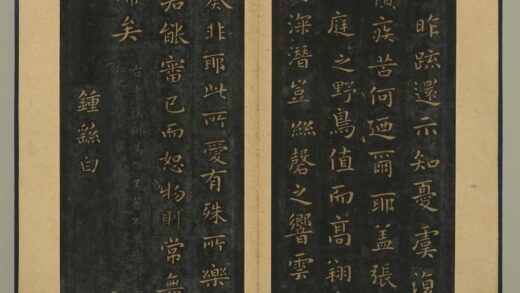 昨疏還示知憂虞復
積疾苦何迺爾耶蓋張
庭之野鳥值而高翔
深潛豈絲磬之響雲
奏非耶此所愛有殊所樂
君能審己而恕物則常無
滯矣
鍾繇白